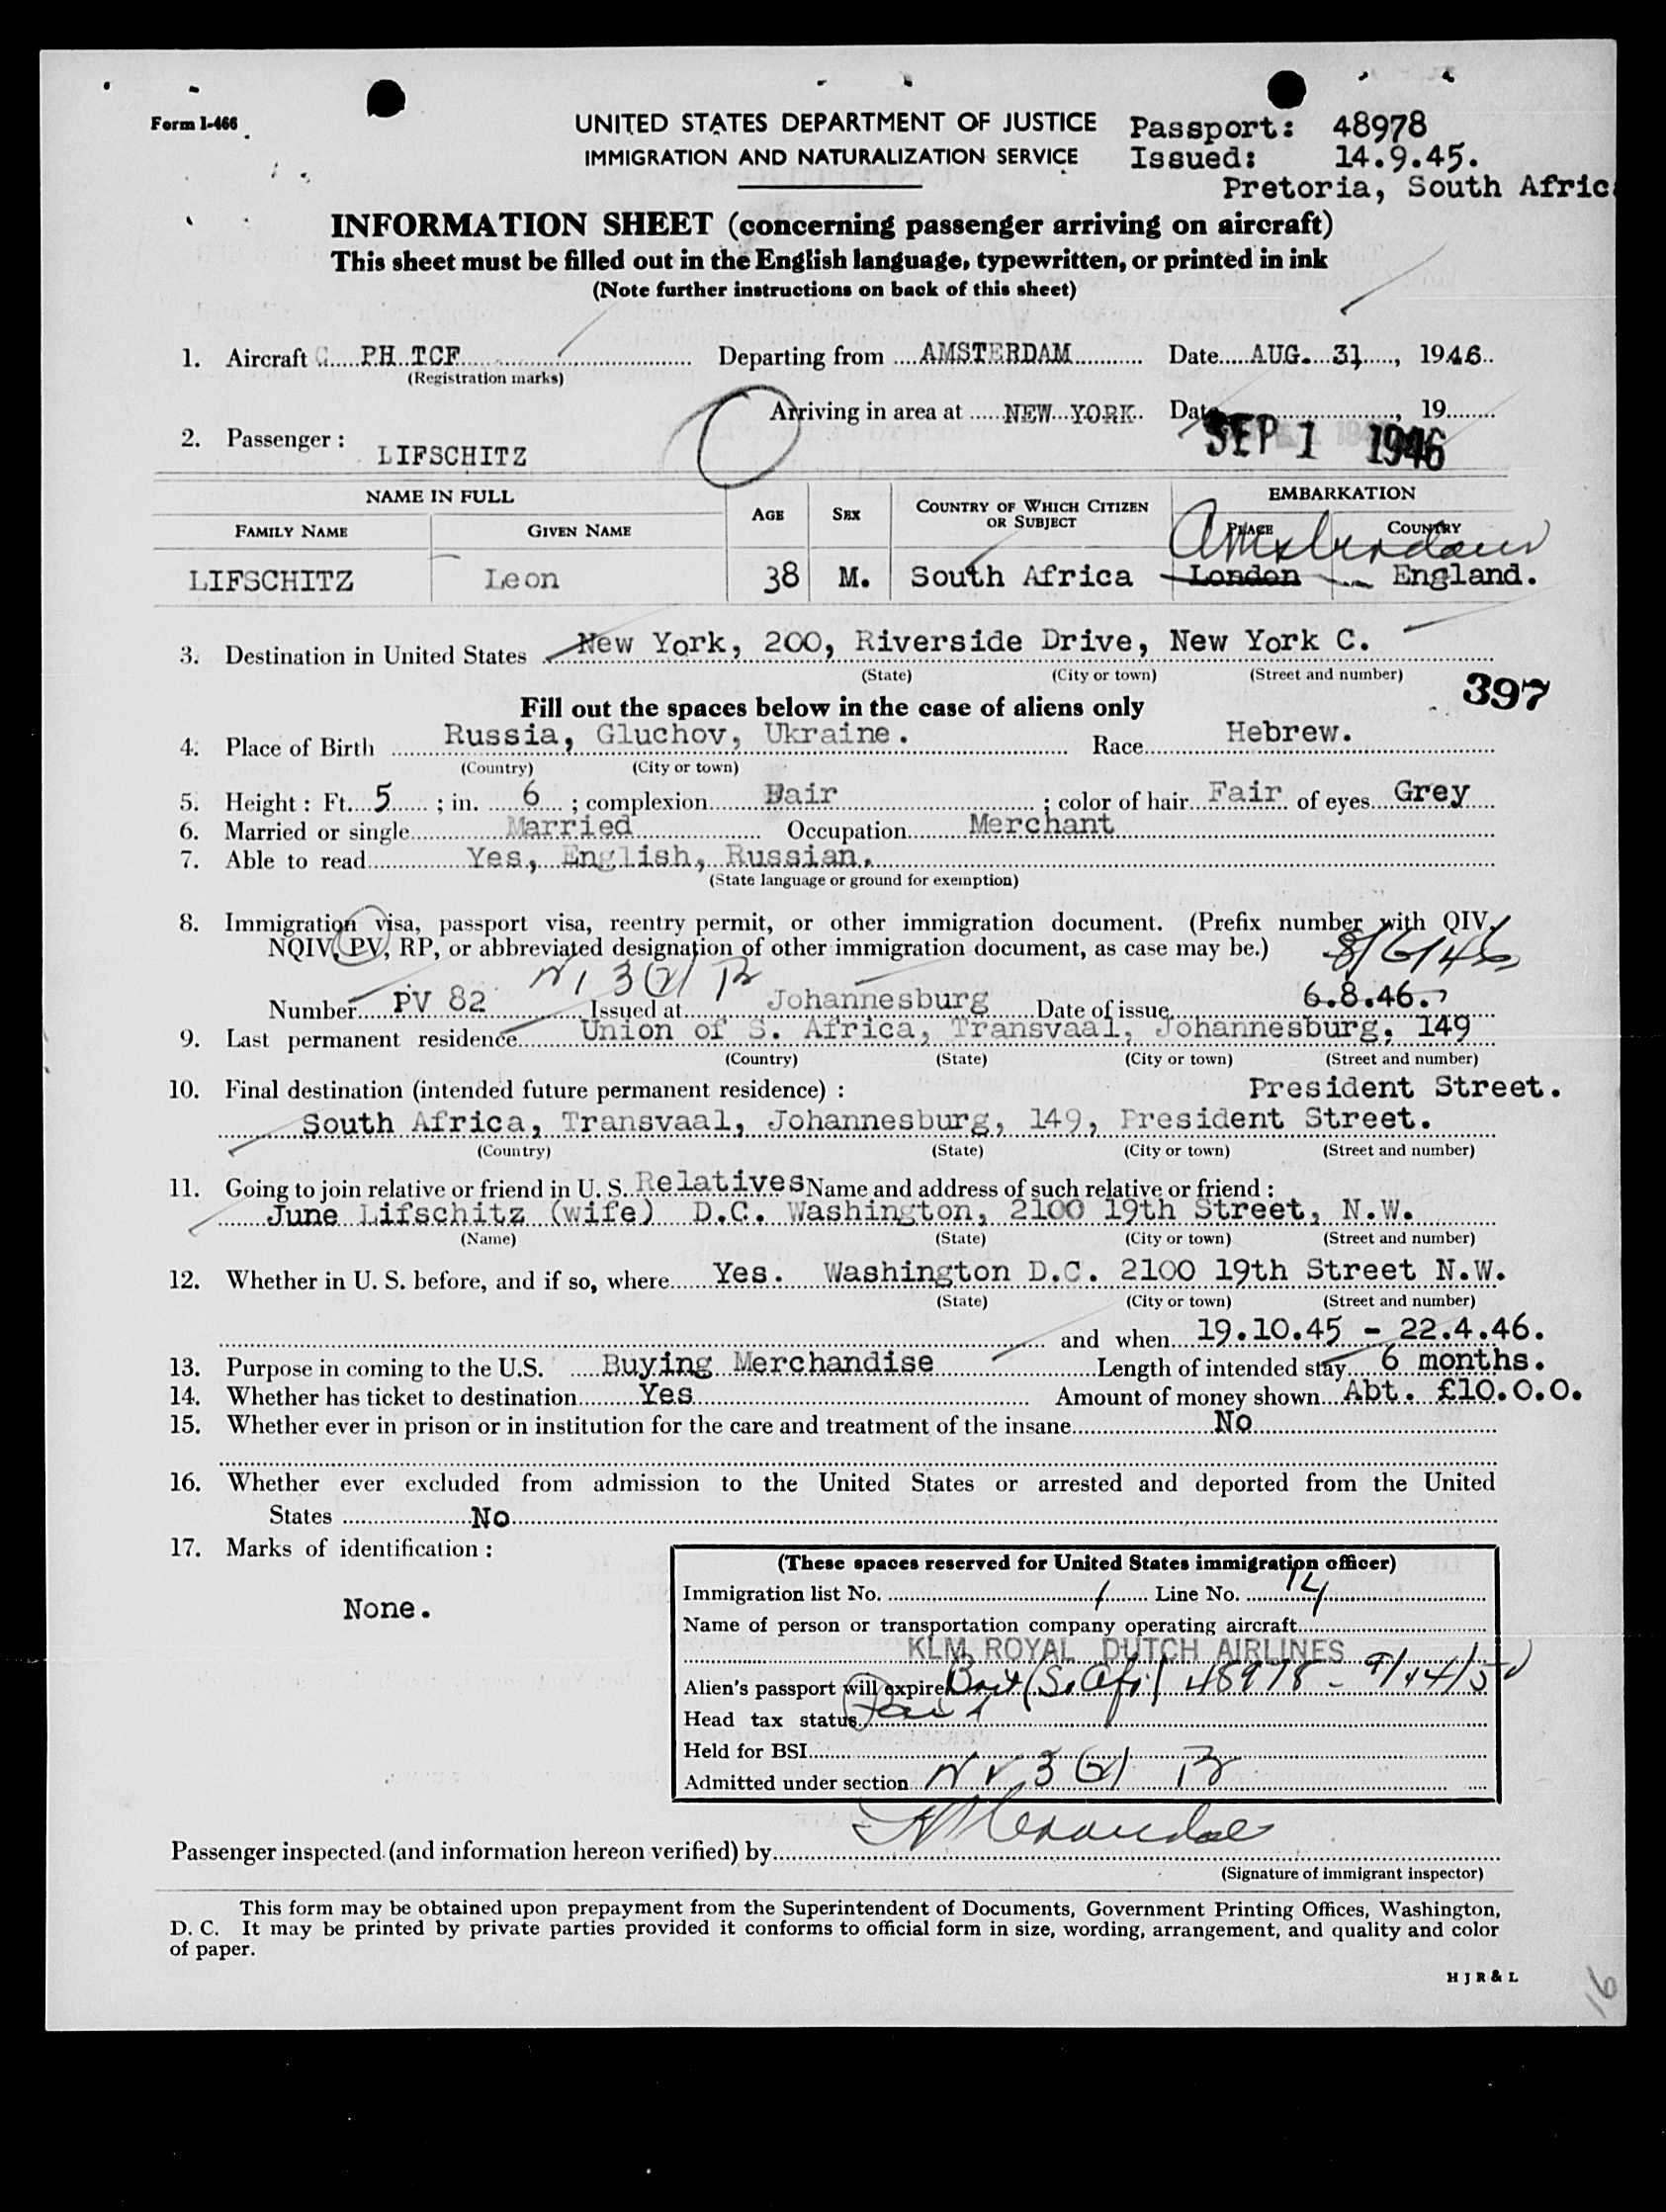 Form I-466
UNITED STATES DEPARTMENT OF JUSTICE
IMMIGRATION AND NATURALIZATION SERVICE
Passport: 48978
Issued: 14.9.45.
Pretoria, South Africa
INFORMATION SHEET (concerning passenger arriving on aircraft)
This sheet must be filled out in the English language, typewritten, or printed in ink
(Note further instructions on back of this sheet)
1. Aircraft PH TCF Departing from AMSTERDAM Date AUG. 31, 1946
(Registration marks)
Arriving in area at NEW YORK Date, 19
SEP 1 1946
2. Passenger :
LIFSCHITZ
NAME IN FULL AGE SEX COUNTRY OF WHICH CITIZEN OR SUBJECT EMBARKATION
FAMILY NAME GIVEN NAME PLACE COUNTRY
Amsterdam
LIFSCHITZ Leon 38 M. South Africa London England.
3. Destination in United States New York, 200, Riverside Drive, New York C.
(State) (City or town) (Street and number)
397
Fill out the spaces below in the case of aliens only
4. Place of Birth Russia, Gluchov, Ukraine. Race Hebrew.
(Country) (City or town)
5. Height : Ft. 5 ; in. 6 ; complexion Fair ; color of hair Fair of eyes Grey
6. Married or single Married Occupation Merchant
7. Able to read Yes, English, Russian.
(State language or ground for exemption)
8. Immigration visa, passport visa, reentry permit, or other immigration document. (Prefix number with QIV,
NQIV, PV, RP, or abbreviated designation of other immigration document, as case may be.)
8/6/46
3(2)
Number PV 82 Issued at Johannesburg Date of issue 6.8.46.
9. Last permanent residence Union of S. Africa, Transvaal, Johannesburg, 149
(Country) (State) (City or town) (Street and number)
10. Final destination (intended future permanent residence) : President Street.
South Africa, Transvaal, Johannesburg, 149, President Street.
(Country) (State) (City or town) (Street and number)
11. Going to join relative or friend in U. S. Relatives Name and address of such relative or friend :
June Lifschitz (wife) D.C. Washington, 2100 19th Street, N.W.
(Name) (State) (City or town) (Street and number)
12. Whether in U. S. before, and if so, where Yes. Washington D.C. 2100 19th Street N.W.
(State) (City or town) (Street and number)
and when 19.10.45 - 22.4.46.
13. Purpose in coming to the U.S. Buying Merchandise Length of intended stay 6 months.
14. Whether has ticket to destination Yes Amount of money shown Abt. £10.0.0.
15. Whether ever in prison or in institution for the care and treatment of the insane No
16. Whether ever excluded from admission to the United States or arrested and deported from the United
States No
17. Marks of identification :
None.
(These spaces reserved for United States immigration officer)
Immigration list No. 1 Line No. 14
Name of person or transportation company operating aircraft
KLM ROYAL DUTCH AIRLINES
Alien's passport will expire Brit (So. Afr.) 48978 - 9/14/50
Head tax status Paid
Held for BSI
Admitted under section 3(2)
Passenger inspected (and information hereon verified) by
(Signature of immigrant inspector)
This form may be obtained upon prepayment from the Superintendent of Documents, Government Printing Offices, Washington,
D. C. It may be printed by private parties provided it conforms to official form in size, wording, arrangement, and quality and color
of paper.
H J R & L
16